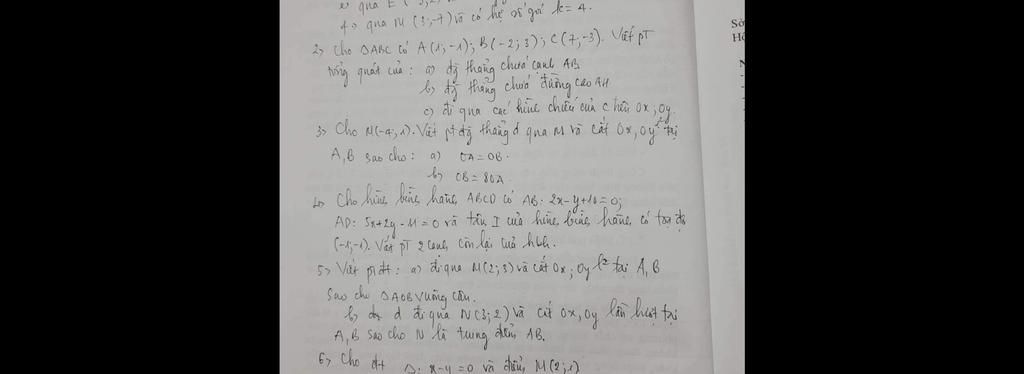 e, qua E (
f, qua M (3;-7) và có hệ số góc k = 4.
2, Cho ΔABC có A(1;-1); B(-2;3); C(7;-3). Viết pT
tổng quát của: a) đg thẳng chứa cạnh AB
b) đg thẳng chứa đường cao AH
c) đi qua các hình chiếu của C trên Ox; Oy.
3, Cho M(-4;1). Viết pt đg thẳng d qua M và cắt Ox, Oy l² tại
A,B sao cho: a) OA=OB.
b) OB=8OA.
4, Cho hình bình hành ABCD có AB: 2x-y+10=0;
AD: 5x+2y-11=0 và tâm I của hình bình hành có tọa độ
(-1;-1). Viết pT 2 cạnh còn lại của hbh.
5, Viết pt đt: a) đi qua M(2;3) và cắt Ox; Oy l² tại A, B
sao cho ΔAOB vuông cân.
b) d đi qua N(3;2) và cắt Ox, Oy lần lượt tại
A, B sao cho N là trung điểm AB.
6, Cho đt Δ: x-y=0 và điểm M(2;1)
Sở